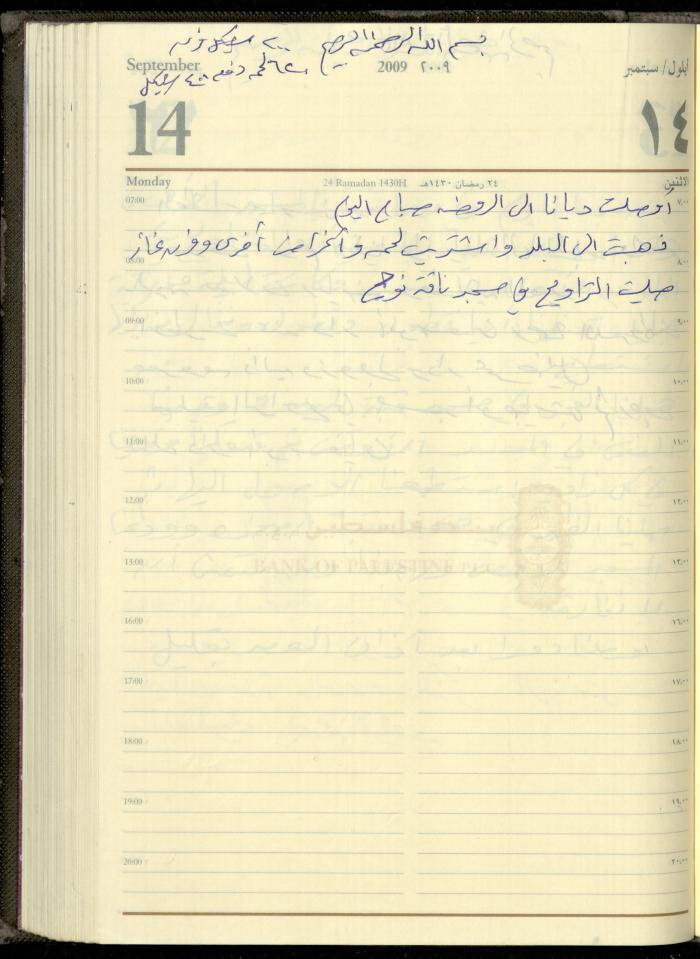 بسم الله الرحمن الرحيم
٢٠٠ شيكل فرن
لحمه دفعه ٤٠٠ شيكل
September 2009 ٢٠٠٩ أيلول / سبتمبر
14 ١٤
Monday 24 Ramadan 1430H ٢٤ رمضان ١٤٣٠هـ الاثنين
07:00 ٧,٠٠
أوصلت ديانا الى الروضه صباح اليوم
ذهبت الى البلد واشتريت لحمه وأغراض أخرى وفرن غاز
08:00 ٨,٠٠
صليت التراويح في مسجد ناقة نوح
09:00 ٩,٠٠
10:00 ١٠,٠٠
11:00 ١١,٠٠
12:00 ١٢,٠٠
بنك فلسطين
13:00 ١٣,٠٠
BANK OF PALESTINE PLC
16:00 ١٦,٠٠
17:00 ١٧,٠٠
18:00 ١٨,٠٠
19:00 ١٩,٠٠
20:00 ٢٠,٠٠